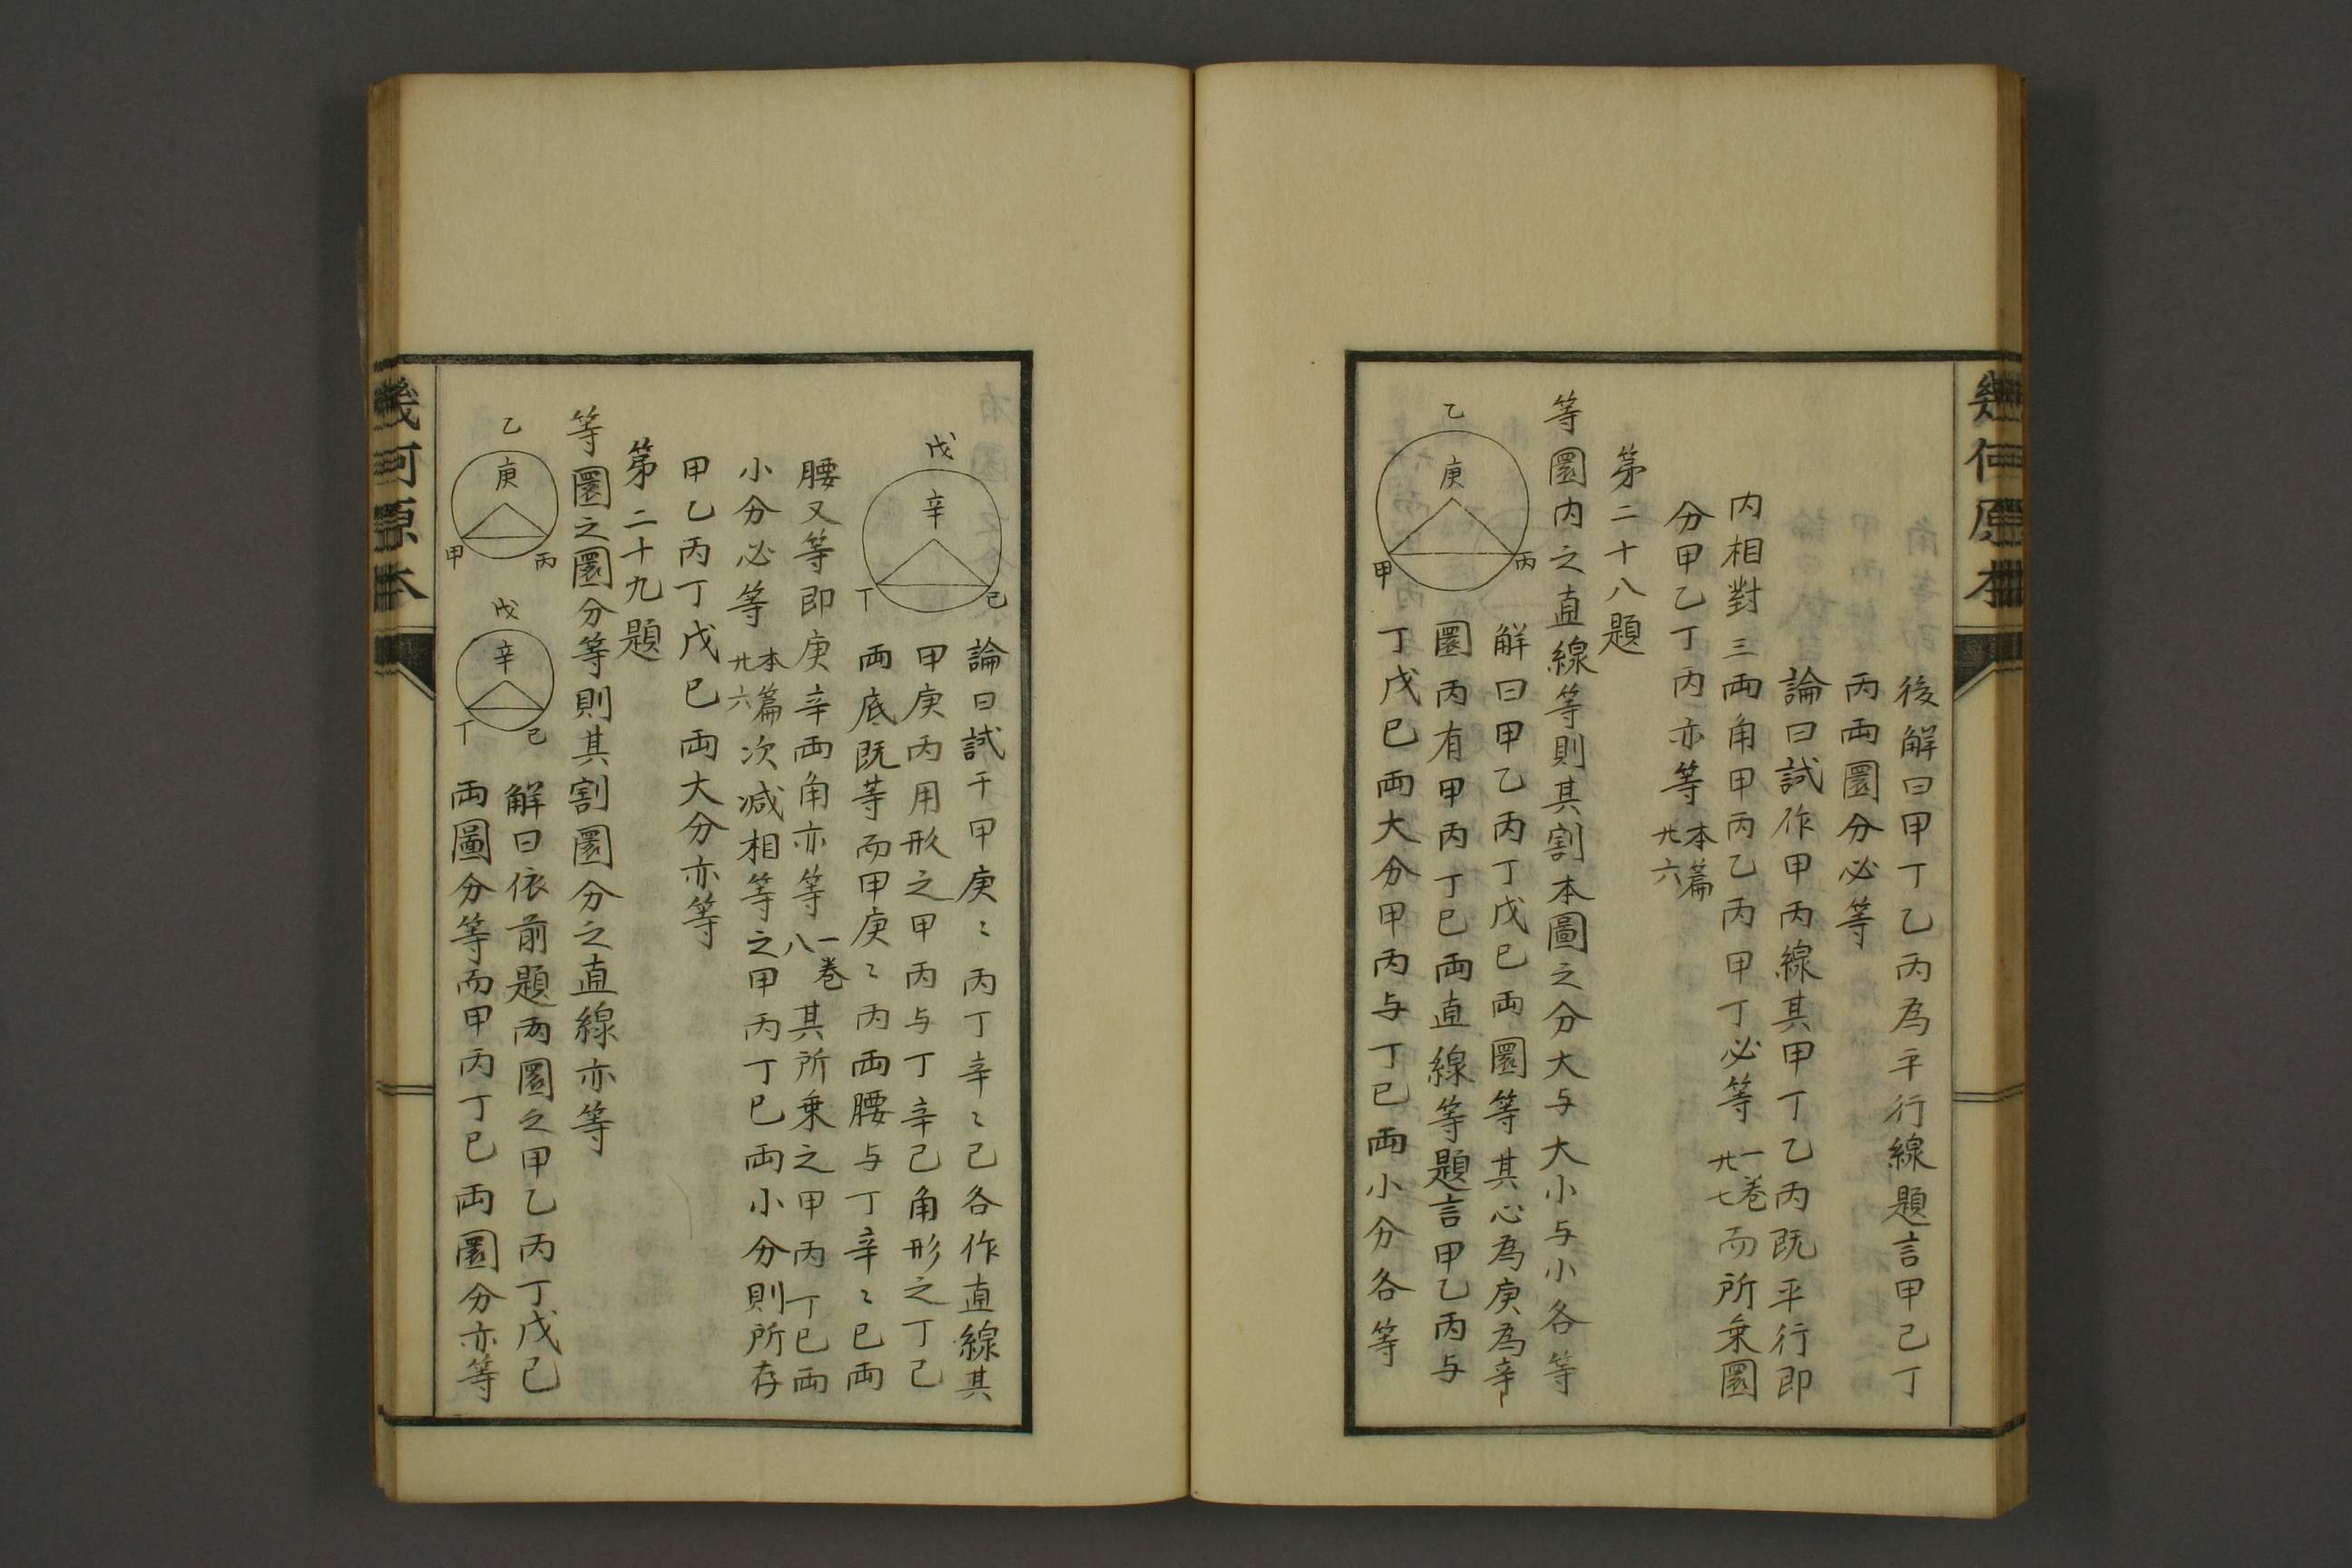 幾何原本
後解曰甲丁乙丙為平行線題言甲己丁
丙兩圜分必等
論曰試作甲丙線其甲丁乙丙既平行即
内相對三両角甲丙乙丙甲丁必等一卷廿七而所乗圜
分甲乙丁丙亦等本篇廿六
第二十八題
等圜内之直線等則其割本圖之分大与大小与小各等
乙
庚
甲
丙
解曰甲乙丙丁戊已両圜等其心為庚為辛
圜丙有甲丙丁已両直線等題言甲乙丙与
丁戊已両大分甲丙与丁已両小分各等
戊
辛
丁
己
論曰試于甲庚〻丙丁辛〻己各作直線其
甲庚丙用形之甲丙与丁辛己角形之丁己
両底既等而甲庚〻丙両腰与丁辛〻已両
腰又等即庚辛両角亦等一卷八其所乗之甲丙丁已両
小分必等本篇廿六次減相等之甲丙丁巳両小分則所存
甲乙丙丁戊巳両大分亦等
第二十九題
等圜之圜分等則其割圜分之直線亦等
乙
庚
甲
丙
戊
辛
丁
己
解曰依前題兩圜之甲乙丙丁戊已
両圖分等而甲丙丁已両圜分亦等
幾何原本